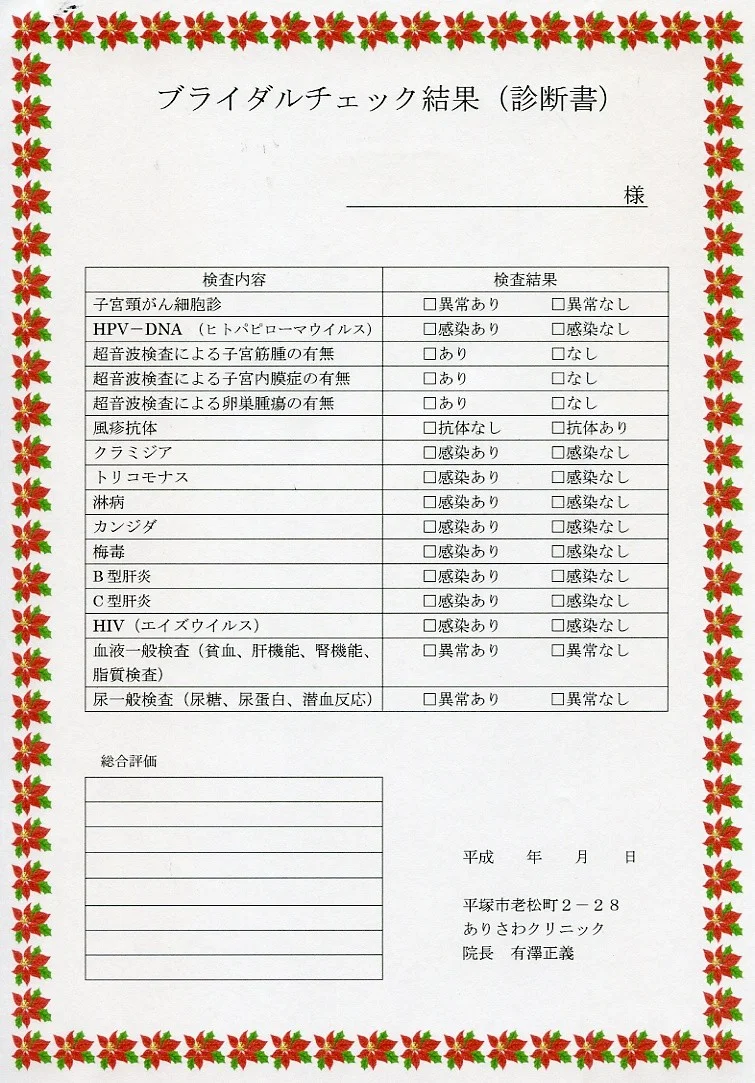 ブライダルチェック結果（診断書）
様
検査内容 検査結果
子宮頸がん細胞診 □異常あり □異常なし
HPV－DNA （ヒトパピローマウイルス） □感染あり □感染なし
超音波検査による子宮筋腫の有無 □あり □なし
超音波検査による子宮内膜症の有無 □あり □なし
超音波検査による卵巣腫瘍の有無 □あり □なし
風疹抗体 □抗体なし □抗体あり
クラミジア □感染あり □感染なし
トリコモナス □感染あり □感染なし
淋病 □感染あり □感染なし
カンジダ □感染あり □感染なし
梅毒 □感染あり □感染なし
B型肝炎 □感染あり □感染なし
C型肝炎 □感染あり □感染なし
HIV（エイズウイルス） □感染あり □感染なし
血液一般検査（貧血、肝機能、腎機能、 □異常あり □異常なし
脂質検査）
尿一般検査（尿糖、尿蛋白、潜血反応） □異常あり □異常なし
総合評価
平成 年 月 日
平塚市老松町２－２８
ありさわクリニック
院長 有澤正義